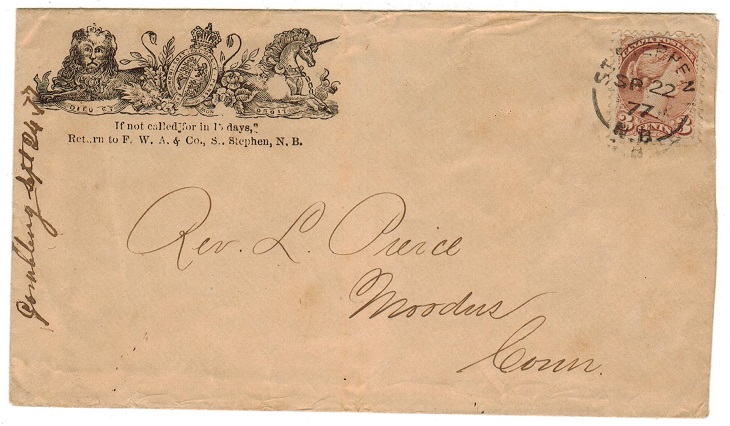 DIEU ET
DROIT
If not called for in 15 days,
Return to F. W. A. & Co., St. Stephen, N. B.
ST. STEPHEN
SP 22
77
N.B
CANADA POSTAGE
3 CENTS 3
Rev. L. Pierce
Moodus
Conn.
Sept 24